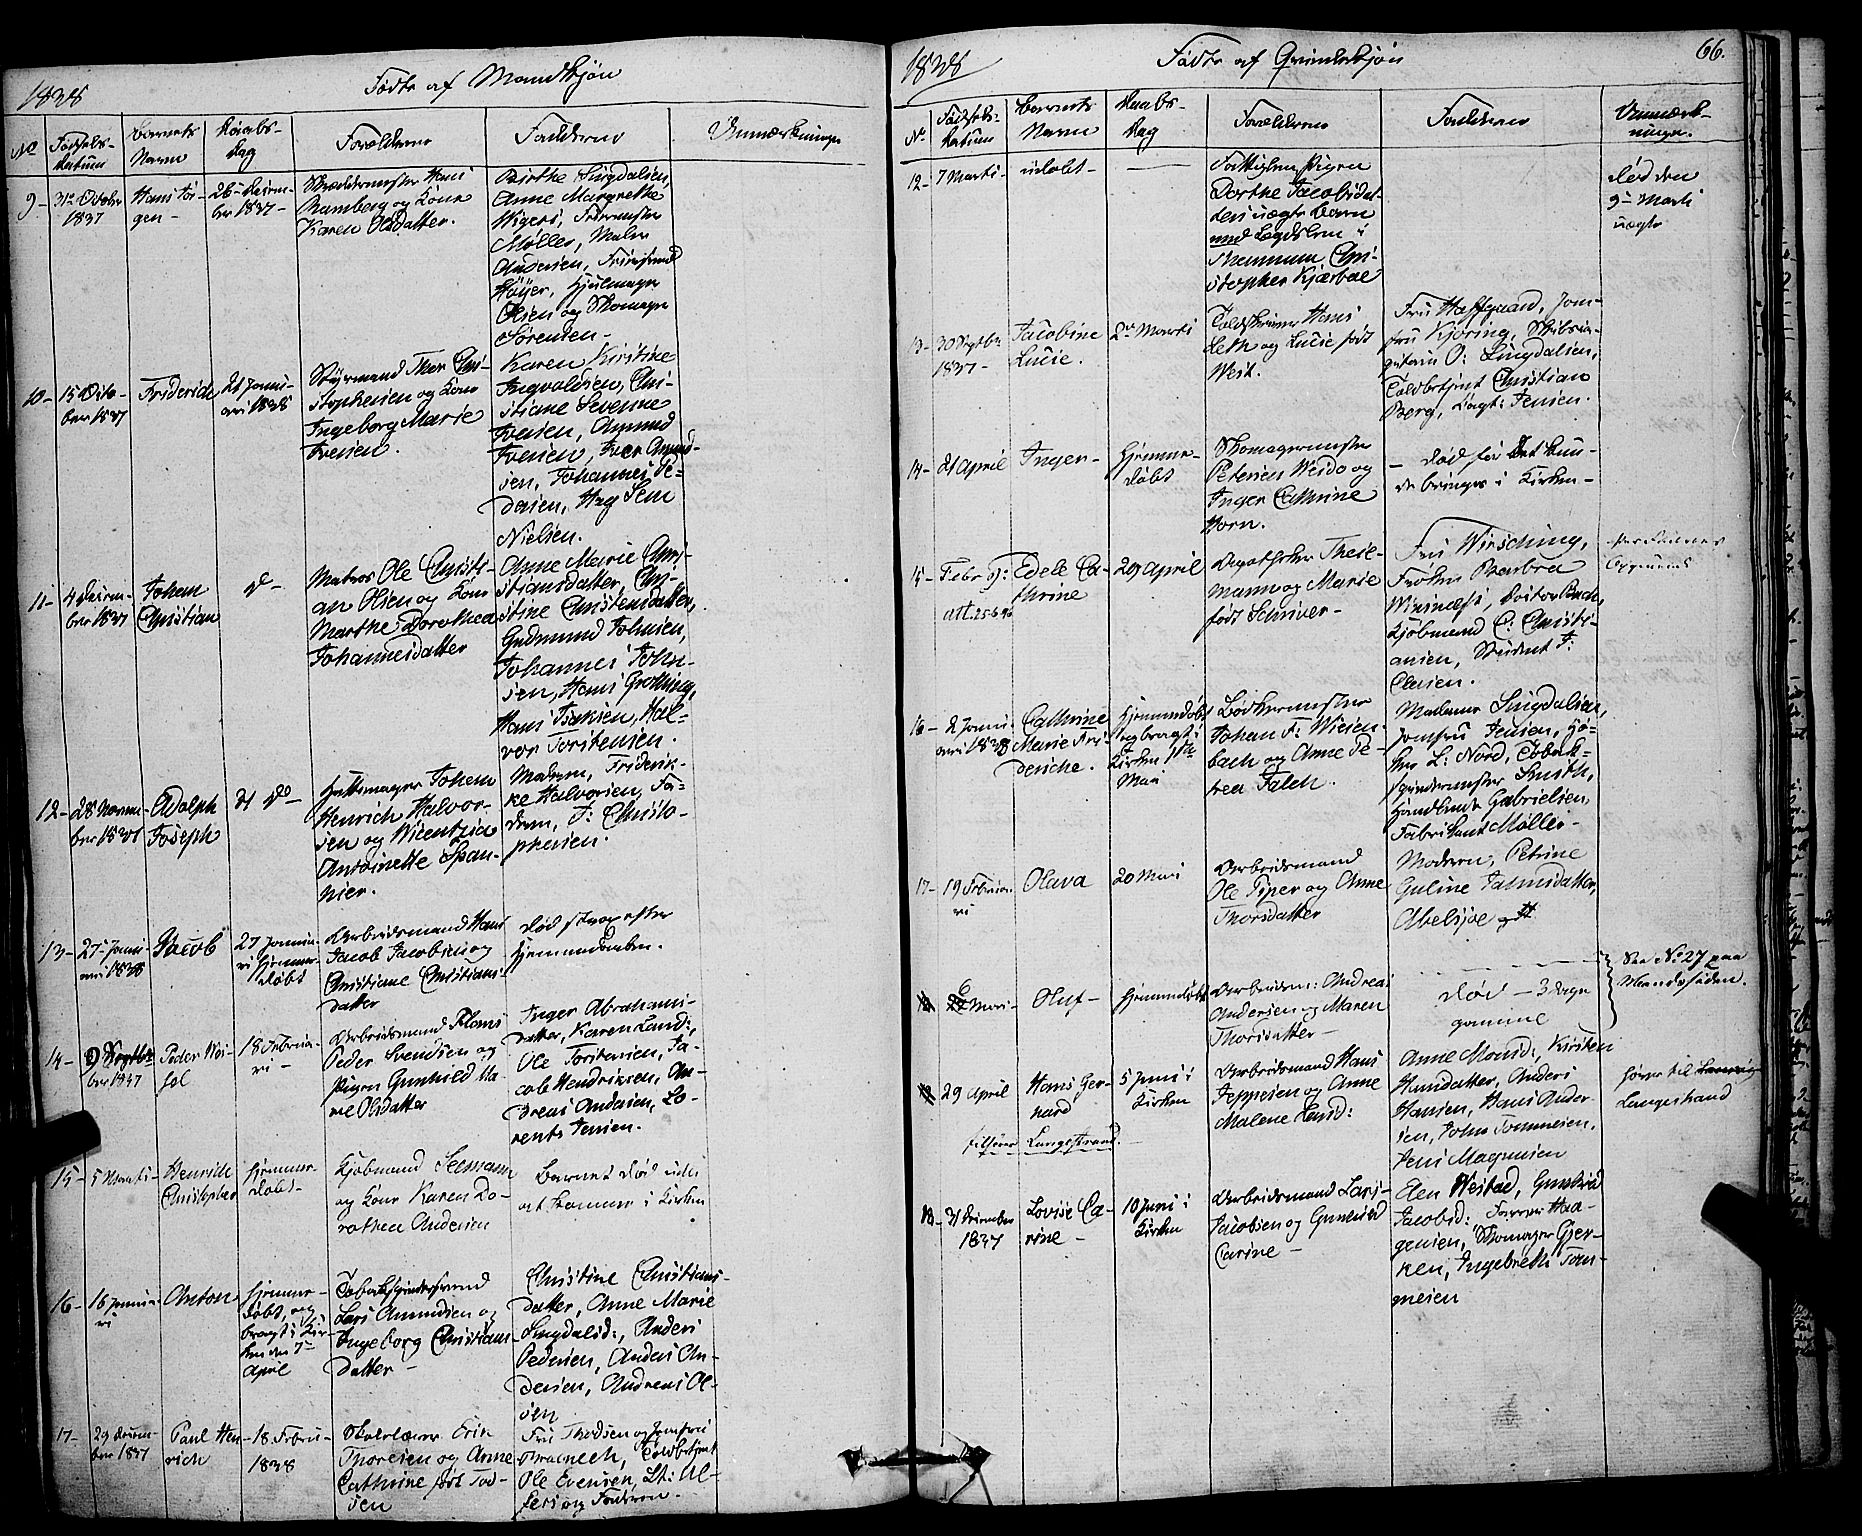 1838
Fødte af Mandkjøn
No
Fødsels-
datum
Barnets
Navn
Daabs-
dag
Forældrene
Fadderne
Anmærkninger
9-
31te Octobr
1837
Hans Jør-
gen -
26- Decem-
ber 1837-
Skræddermester Hans
Ramberg og Kone
Karen Olsdatter.
Birthe Lingdalsen,
Anne Margrethe
Møller, Maler
Andersen,
Höyer, Hjulmager
Olsen og Skomager
Sørensen-
10-
15 Octo-
ber 1837
Friderich
21 Janu-
ari 1838
Styrmand Thor Chri-
stophersen og Kone
Ingeborg Marie
Iversen.
Karen Kirstine
Ingvaldsen, Chri-
stiane Severine
Iversen, Amund
Iversen, Iver Amund-
sen, Johannes Pe-
dersen,
Nielsen.
11-
4 Decem-
ber 1837
Johan
Christian
do-
Matros Ole Christi-
an Olsen og Kone
Marthe Dorothea
Johannesdatter
Anne Marie Chri-
stiansdatter, Chri-
stine Christensdatter,
Gudmund Johnsen,
Johannes John-
sen, Hans Grothing,
Hans Isaksen, Hal-
vor Torstensen.
12-
28 Novem-
ber 1837
Adolph
Joseph
21 do-
Hattemager Johan
Henrich Halvor-
sen og Vicentzia
Antoinette Span-
nier.
Madam, Friderik-
ke Halvorsen, Fa-
deren, J: Christo-
phersen.
13-
27- Janu-
ari 1838
Jacob
27 Janua-
ri hjemme-
døbt
Arbeidsmand Hans
Jacob Jacobsen og
Christiane Christians-
datter
død strax efter
hjemmedaaben.
14-
9
ber 1837
Peder
18 Februa-
ri -
Arbeidsmand
Peder Svendsen og
Pigen Gunhild Ma-
rie Olsdatter
Inger Abrahams-
datter, Karen Land:,
Ole Torstensen, Ja-
cob Hendriksen, An-
dreas Andersen, Lo-
rents Jensen.
15-
5 Marti-
Henrich
Christopher
hjemme-
døbt-
Kjøbmand Seemann
og Kone Karen Do-
rothea Andersen
Barnet død uden
at komme i Kirken
16-
16 Janua-
ri
Anton
hjemme-
døbt, og
bragt i Kir-
ken den 7de
April
Tobaksspindersvend
Lars Amundsen og
Ingeborg Christians-
datter -
Christine Christians-
datter, Anne Marie
Lingdalsd:, Anders
Pedersen, Anders An-
dersen, Andreas Ol-
sen
17-
29 Decem-
ber 1837
Paul Hen-
rich
18 Febru-
1838
Skolelærer Erik
Thoresen og Anne
Cathrine født Tod-
sen
Fru Thodsen og Jomfru
Toldbetjent
Ole Evensen, Lt: Al-
lers og Faderen.
1838
Fødte af Qvindekjøn
66.
No
Fødsels-
datum
Barnets
Navn
Daabs-
dag
Forældrene
Fadderne
Anmærk-
ninger.
12-
7 Marti-
udøbt-
Fattiglem Pigen
Dorthe Jacobsdat-
ters uægte Barn
med Lægdslem i
Skemmum Chri-
stopher Kjærbae
død den
9- Marti
uægte
13-
30 Septbr.
1837-
Jacobine
Lucie.
2den Marti
Toldskriver Hans
Leth og Lucie født
West.
Fru Haffgaard, Jom-
fru Kjøring, Skibsca-
pitain O: Lingdalsen,
Toldbetjent Christian
Borg, Jensen.
14-
21 April
Inger-
hjemme-
døbt
Skomagermester
Petersen Weido og
Inger Cathrine
Horn.
- død før det kun-
de bringes i Kirken-
15-
Febr:
Att. 25
Edele Ca-
thrine
29 April
Apotheker Theil-
mann og Marie
født Schriver-
Fru Wirsching,
Frøken Barbra
Doctor Bach,
Kjöbmand C: Christi-
ansen, Student J:
Clausen.
16-
2 Janu-
ari 1838
Cathrine
Marie Fri-
deriche.
hjemmedøbt
og bragt i
Kirken
Mai
Bødkermester
Johan F: Wiesen-
bach og Anne Pe-
trea Falch.
Madame Lingdalsen,
Jomfru Jensen, Hø-
ker L: Nord, Tobak-
spindermester Smith,
Handlende Gabrielsen,
Fabrikant Møller-
17-
19 Februa-
ri
Olava
20 Mai
Arbeidsmand
Ole Piper og Anne
Thorsdatter
Moderen, Petrine
Guline Jahnsdatter,
Abelsøe
6
Mari-
Oluf-
hjemmedøbt
Arbeidsm: Andreas
Andersen og Maren
Thorsdatter-
død - 3 Dage
gammel
See No 27 paa
Mandssiden.
29 April
Hans Ger-
nard
5 Juni i
Kirken
Arbeidsmand Hans
Jeppesen og Anne
Malene Larsd:
Anne Monsd:, Kirsten
Hansdatter, Anders
Hansen, Hans Ander-
sen, John Tommesen,
Jens Magnusen
hører til
Langestrand
tilhører Langestrand.
18-
31 December
1837
Lovise Ca-
rine-
10 Juni i
Kirken
Arbeidsmand Lars
Jacobsen og Gunhild
Carine-
Elen Westad, Gunhild
Jacobsd: Haa-
gensen, Skomager Gjer-
ken, Ingebreth Tom-
mesen